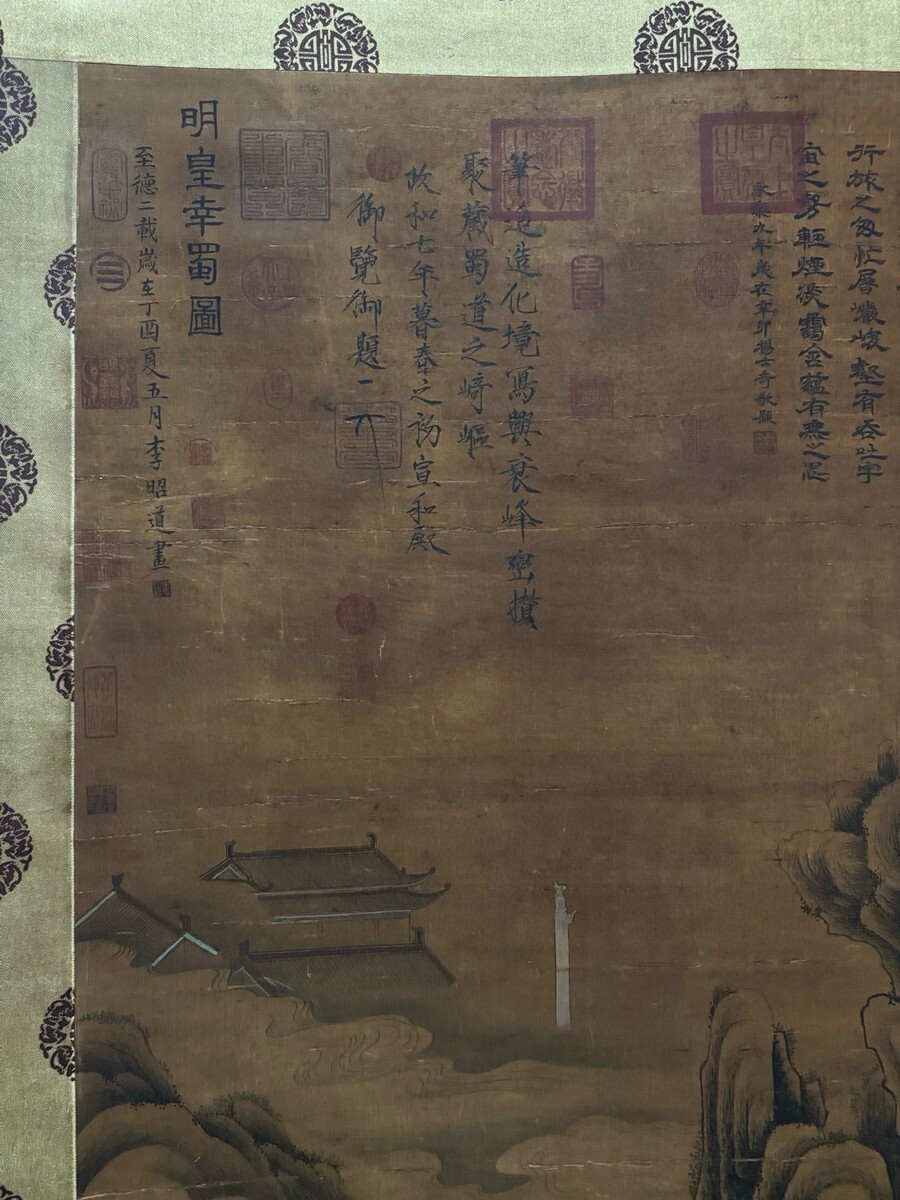 行旅之匆忙層巘峻壑有吞吐宇
宙之勢輕煙淡靄含蘊有無之思
永樂九年歲在辛卯楊士奇敬題
筆追造化境寫興衰峰巒攢
聚藏蜀道之崎嶇
政和七年暮春之初宣和殿
御覽御題
明皇幸蜀圖
至德二載歲在丁酉夏五月李昭道畫